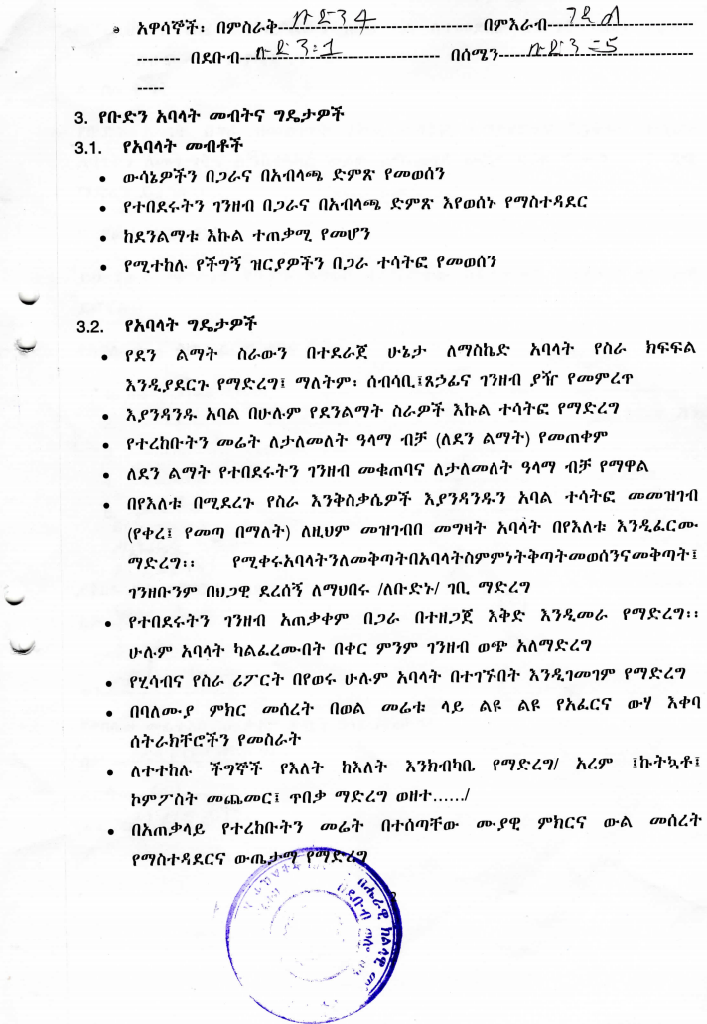 • አዋሳኞች፡ በምስራቅ---------------------- በምእራብ----------------
-------- በደቡብ---------------------- በሰሜን----------------------
-----
3. የቡድን አባላት መብትና ግዴታዎች
3.1. የአባላት መብቶች
• ውሳኔዎችን በጋራና በአብላጫ ድምጽ የመወሰን
• የተበደሩትን ገንዘብ በጋራና በአብላጫ ድምጽ እየወሰኑ የማስተዳደር
• ከደንልማቱ እኩል ተጠቃሚ የመሆን
• የሚተከሉ የችግኝ ዝርያዎችን በጋራ ተሳትፎ የመወሰን
3.2. የአባላት ግዴታዎች
• የደን ልማት ስራውን በተደራጀ ሁኔታ ለማስኬድ አባላት የስራ ክፍፍል
እንዲያደርጉ የማድረግ፤ ማለትም፡ ሰብሳቢ፤ጸኃፊና ገንዘብ ያዥ የመምረጥ
• እያንዳንዱ አባል በሁሉም የደንልማት ስራዎች እኩል ተሳትፎ የማድረግ
• የተረከቡትን መሬት ለታለመለት ዓላማ ብቻ (ለደን ልማት) የመጠቀም
• ለደን ልማት የተበደሩትን ገንዘብ መቁጠባና ለታለመለት ዓላማ ብቻ የማዋል
• በየእለቱ በሚደረጉ የስራ እንቅስቃሴዎች እያንዳንዱን አባል ተሳትፎ መመዝገብ
(የቀረ፤ የመጣ በማለት) ለዚህም መዝገብበ መግዛት አባላት በየእለቱ እንዲፈርሙ
ማድረግ፡፡ የሚቀሩአባላትንለመቅጣትበአባላትስምምነትቅጣትመወሰንናመቅጣት፤
ገንዘቡንም በህጋዊ ደረሰኝ ለማህበሩ /ለቡድኑ/ ገቢ ማድረግ
• የተበደሩትን ገንዘብ አጠቃቀም በጋራ በተዘጋጀ እቅድ እንዲመራ የማድረግ፡፡
ሁሉም አባላት ካልፈረሙበት በቀር ምንም ገንዘብ ወጭ አለማድረግ
• የሂሳብና የስራ ሪፖርት በየወሩ ሁሉም አባላት በተገኙበት እንዲገመገም የማድረግ
• በባለሙያ ምክር መሰረት በወል መሬቱ ላይ ልዩ ልዩ የአፈርና ውሃ እቀባ
ሰትራክቸሮችን የመስራት
• ለተተከሉ ችግኞች የእለት ከእለት እንክብካቤ የማድረግ/ አረም ፤ኩትኳቶ፤
ኮምፖስት መጨመር፤ ጥበቃ ማድረግ ወዘተ....../
• በአጠቃላይ የተረከቡትን መሬት በተሰጣቸው ሙያዊ ምክርና ውል መሰረት
የማስተዳደርና ውጤታማ የማድረግ